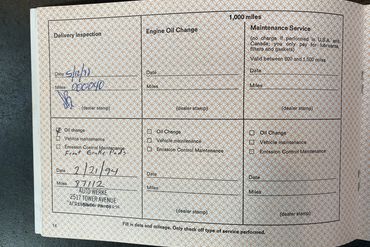 1,000 miles
Delivery Inspection
Engine Oil Change
Maintenance Service
(no charge if performed in U.S.A. and
Canada; you only pay for lubricants,
filters and gaskets)
Valid between 600 and 1,000 miles
Date 5/12/71
Miles 000040
(dealer stamp)
Date
Miles
(dealer stamp)
Date
Miles
(dealer stamp)
Oil change
Vehicle maintenance
Emission Control Maintenance
Front Brake Pads
Date 2/21/94
Miles 87112
AUTO WERKE
2517 TOWER AVENUE
Oil Change
Vehicle maintenance
Emission Control Maintenance
Date
Miles
(dealer stamp)
Oil Change
Vehicle maintenance
Emission Control Maintenance
Date
Miles
(dealer stamp)
14
Fill in date and mileage. Only check off type of service performed.